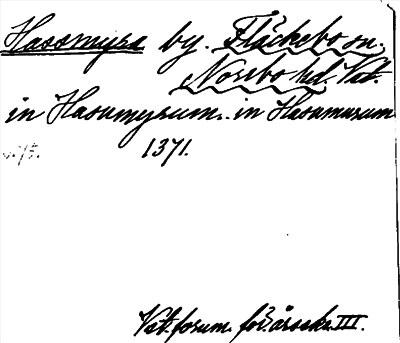 Hassmyra by. Fläckebo sn.
Norrbo hd. Vstm.
in Hasumyrum. in Hasumurum
1371.
Vstm. fornm. för. årsskr. III.